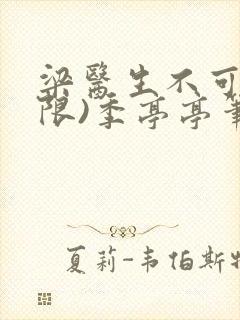 梁醫生不可
限)季亭亭筆
夏莉-韦伯斯特